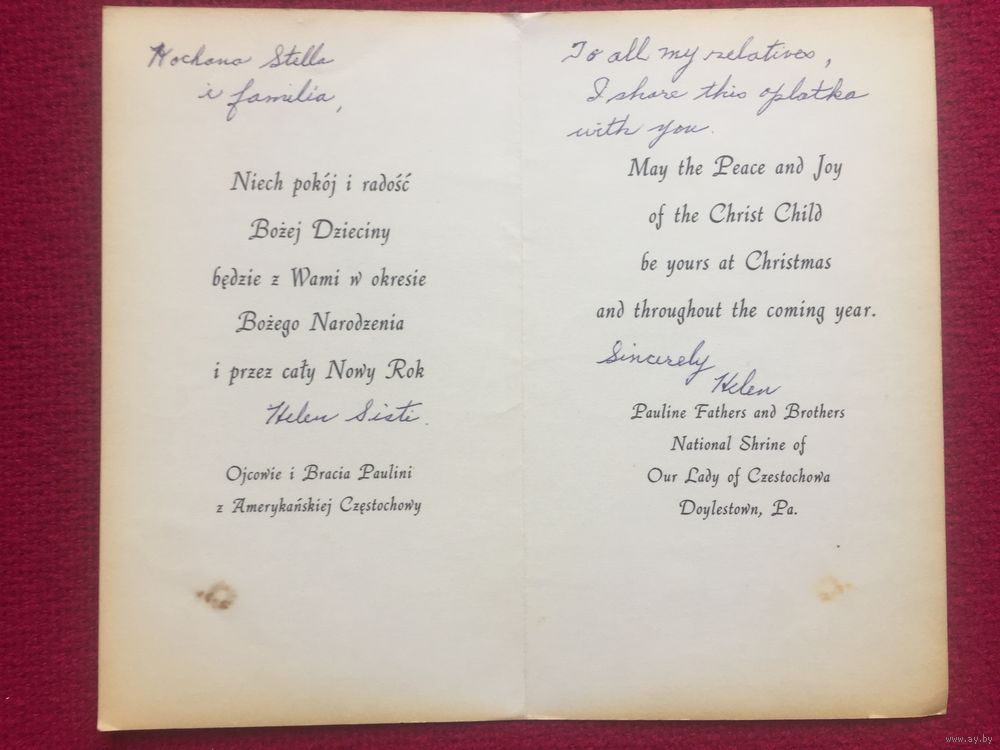 Kochana Stella
i familia,
Niech pokój i radość
Bożej Dzieciny
będzie z Wami w okresie
Bożego Narodzenia
i przez cały Nowy Rok
Helen Sisti.
Ojcowie i Bracia Paulini
z Amerykańskiej Częstochowy
To all my relatives,
I share this oplatka
with you.
May the Peace and Joy
of the Christ Child
be yours at Christmas
and throughout the coming year.
Sincerely
Helen
Pauline Fathers and Brothers
National Shrine of
Our Lady of Czestochowa
Doylestown, Pa.
www.ay.by